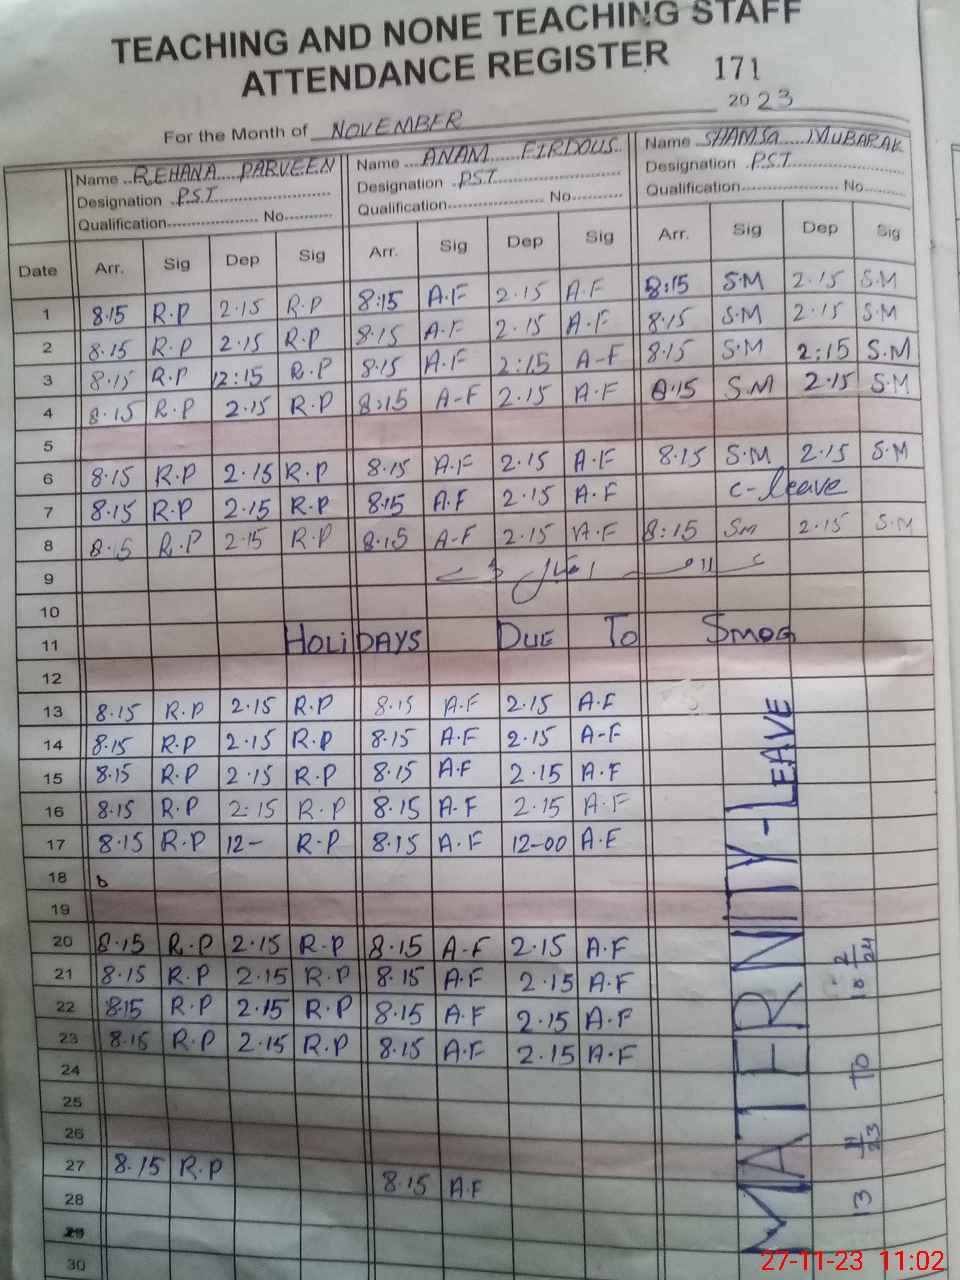 TEACHING AND NONE TEACHING STAFF
ATTENDANCE REGISTER 171
For the Month of NOVEMBER 2023
Name REHANA PARVEEN Name ANAM FIRDOUS Name SHAMSA MUBARAK
Designation P.S.T Designation P.S.T Designation P.S.T
Qualification No Qualification No Qualification No
Date Arr. Sig Dep Sig Arr. Sig Dep Sig Arr. Sig Dep Sig
1 8.15 R.P 2.15 R.P 8:15 A.F 2.15 A.F 8:15 S.M 2.15 S.M
2 8.15 R.P 2.15 R.P 8.15 A.F 2.15 A.F 8.15 S.M 2.15 S.M
3 8.15 R.P 12:15 R.P 8.15 A.F 2:15 A-F 8.15 S.M 2:15 S.M
4 8.15 R.P 2.15 R.P 8:15 A-F 2.15 A.F 8.15 S.M 2.15 S.M
5
6 8.15 R.P 2.15 R.P 8.15 A.F 2.15 A.F 8.15 S.M 2.15 S.M
7 8.15 R.P 2.15 R.P 8.15 A.F 2.15 A.F C-leave
8 8.15 R.P 2.15 R.P 8.15 A-F 2.15 A.F 8:15 Sm 2.15 S.M
9
10
11 HOLIDAYS DUE TO SMOG
12
13 8.15 R.P 2.15 R.P 8.15 A.F 2.15 A.F
14 8.15 R.P 2.15 R.P 8.15 A.F 2.15 A-F
15 8.15 R.P 2.15 R.P 8.15 A.F 2.15 A.F
16 8.15 R.P 2.15 R.P 8.15 A.F 2.15 A.F
17 8.15 R.P 12- R.P 8.15 A.F 12-00 A.F
18
19
20 8.15 R.P 2.15 R.P 8.15 A-F 2.15 A.F
21 8.15 R.P 2.15 R.P 8.15 A.F 2.15 A.F
22 8.15 R.P 2.15 R.P 8.15 A.F 2.15 A.F
23 8.15 R.P 2.15 R.P 8.15 A.F 2.15 A.F
24
25
26
27 8.15 R.P 8.15 A.F
28
29
30
MATERNITY-LEAVE
13 11/23 TO 10 2/24
27-11-23 11:02